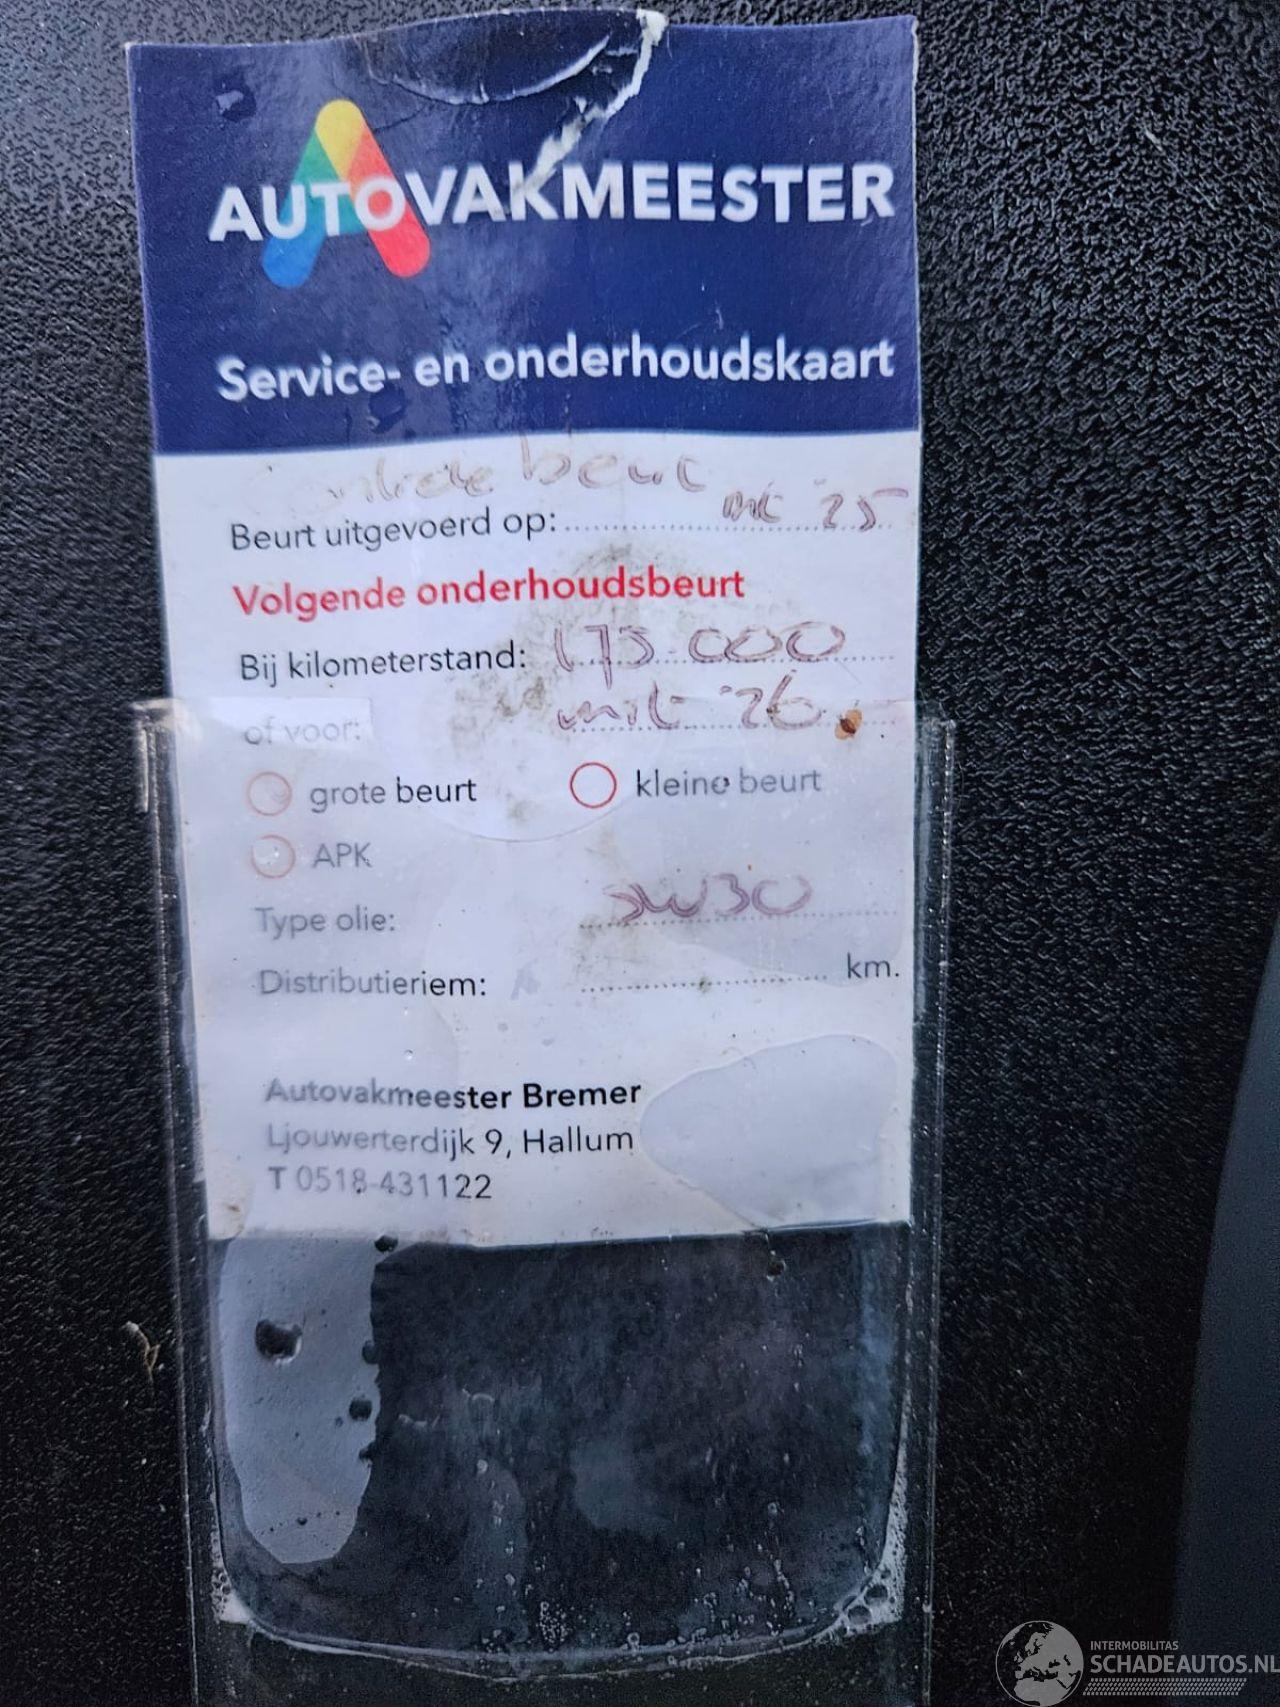 AUTOVAKMEESTER
Service- en onderhoudskaart
beurt
Beurt uitgevoerd op: '25
Volgende onderhoudsbeurt
Bij kilometerstand: 175.000
of voor: '26
grote beurt kleine beurt
APK
Type olie: 5W30
Distributieriem: km.
Autovakmeester Bremer
Ljouwerterdijk 9, Hallum
T 0518-431122
INTERMOBILITAS
SCHADEAUTOS.NL